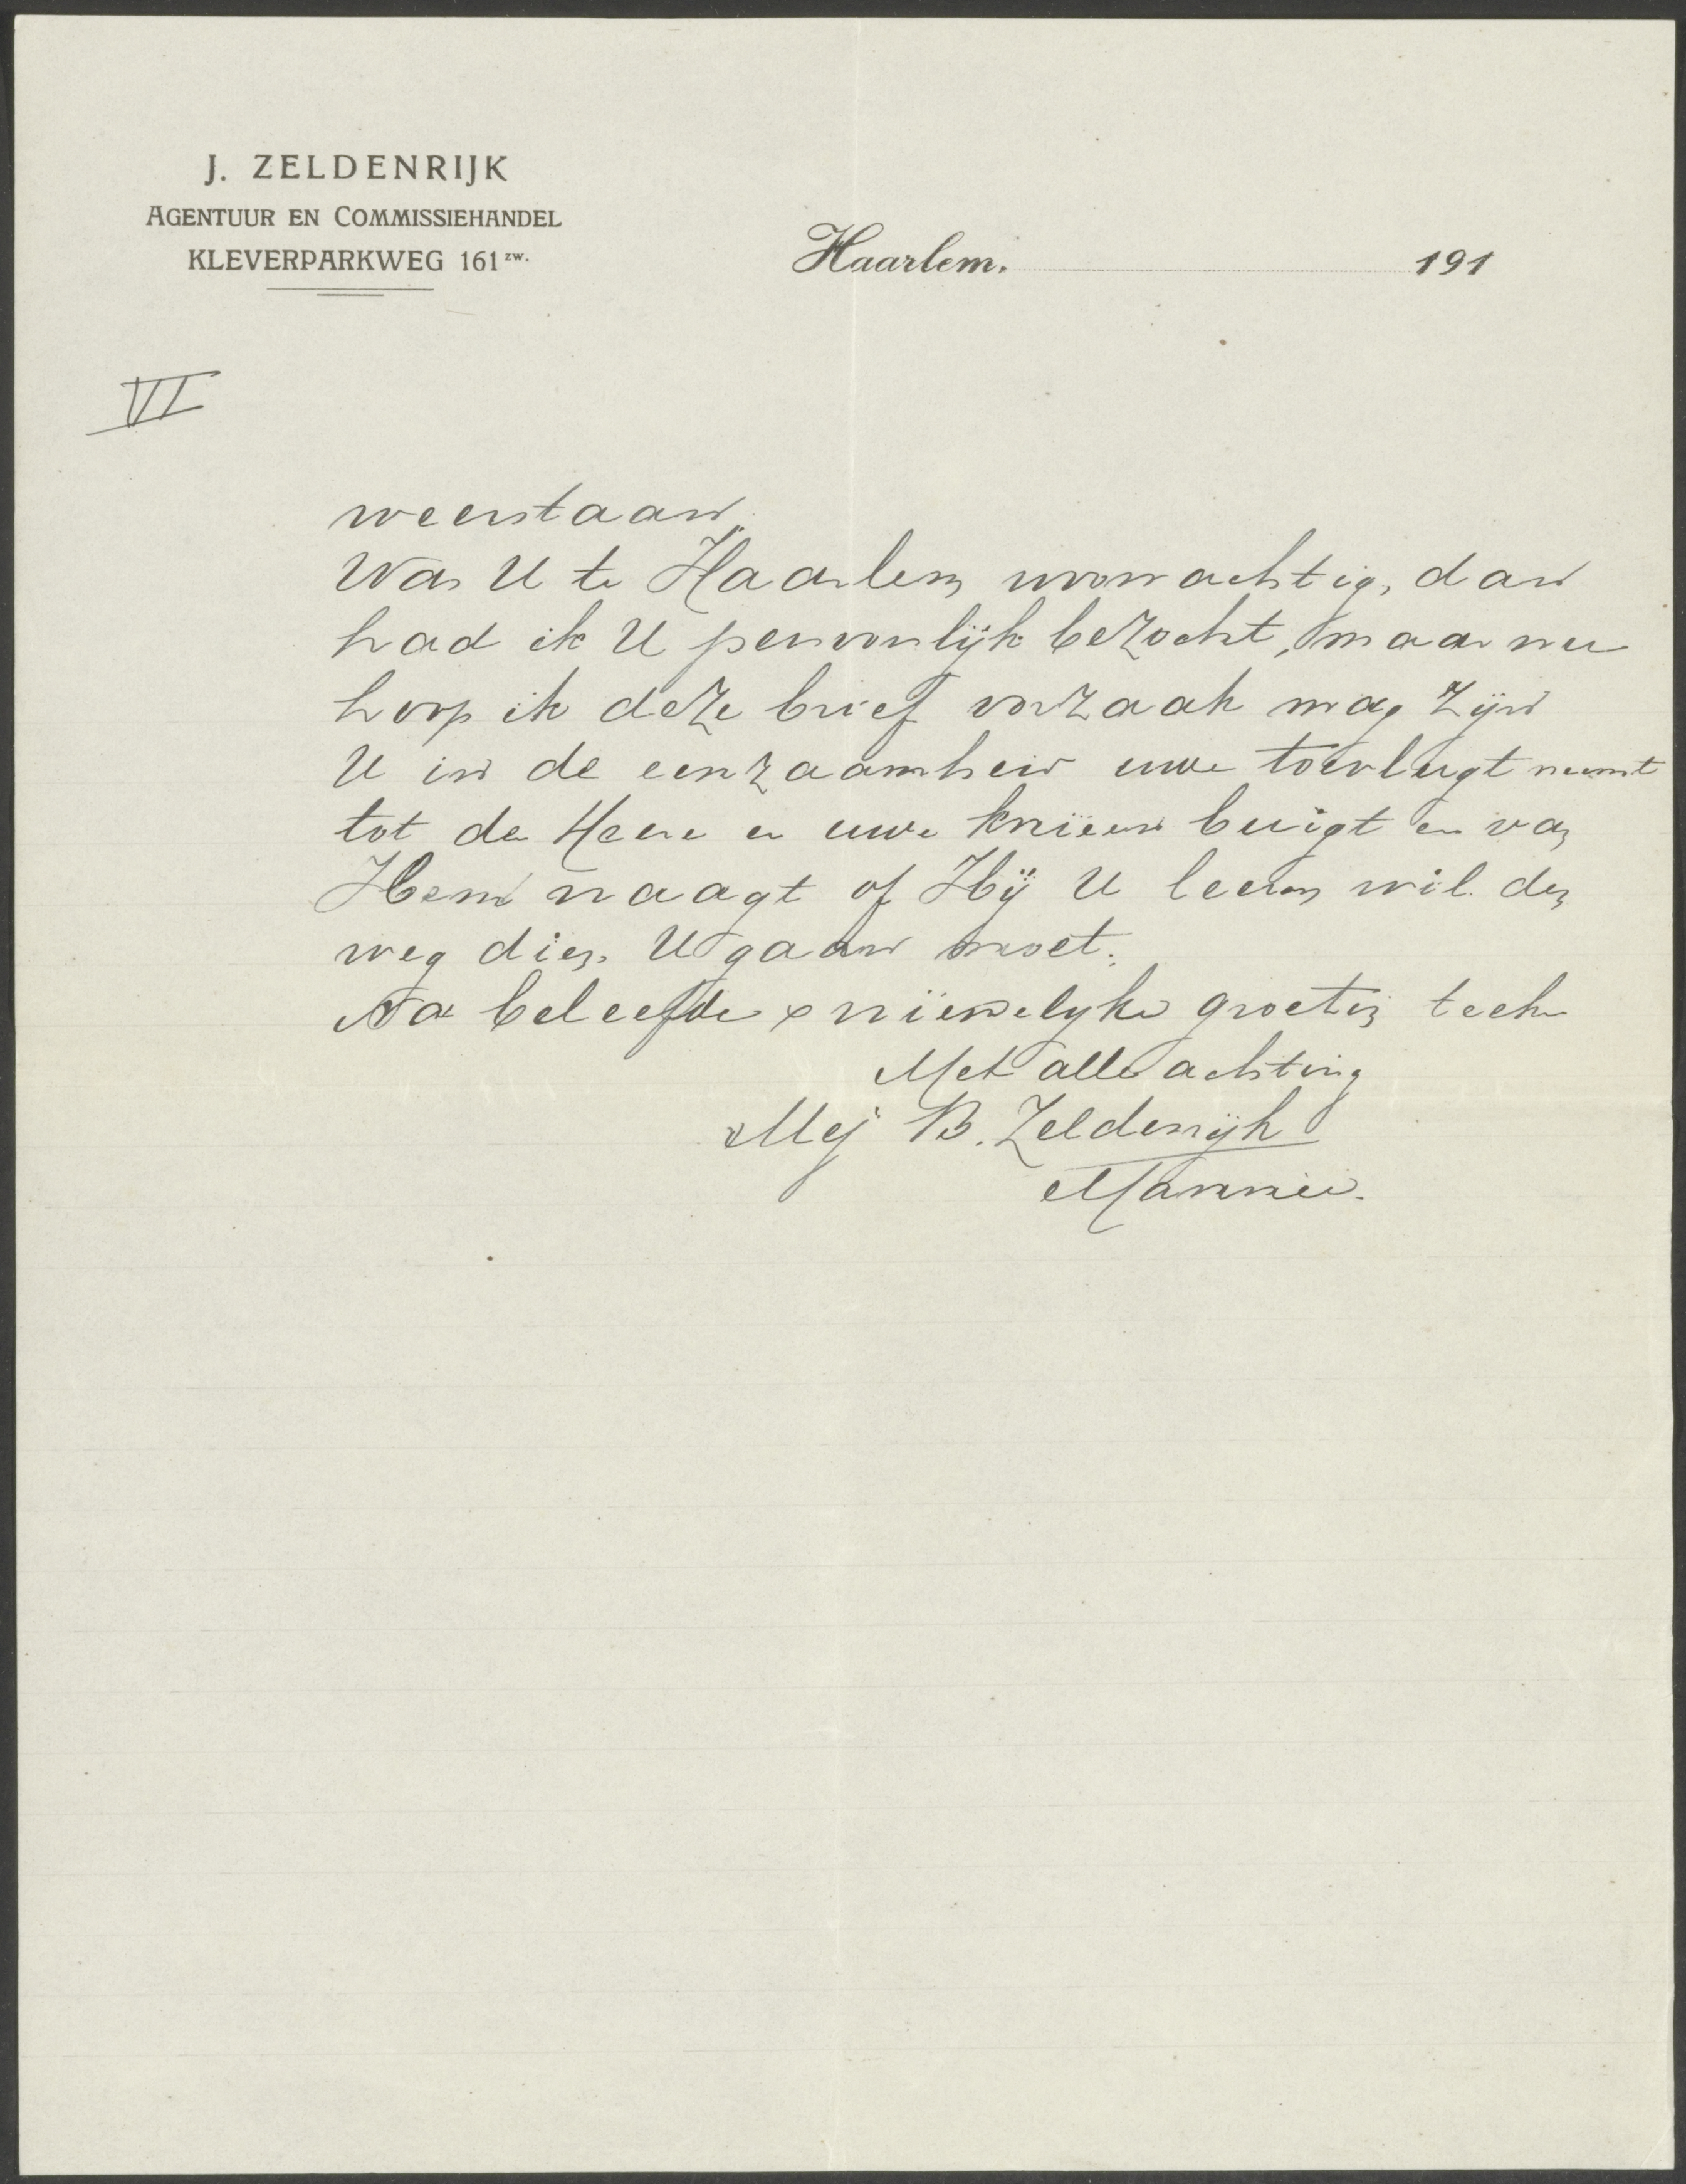 J. ZELDENRIJK
AGENTUUR EN COMMISSIEHANDEL
KLEVERPARKWEG 161 zw.
Haarlem, 191
VI
weerstaan."
Was U te Haarlem woonachtig, dan
had ik U persoonlijk bezocht, maar nu
hoop ik deze brief oorzaak mag zijn
U in de eenzaamheid uwe toevlugt neemt
tot den Heere en uwe knieën buigt en van
Hem vraagt of Hij U leeren wil den
weg dien U gaan moet.
Na beleefde & vriendelyke groeten teeken
Met alle achting
Mej B. Zeldenrijk
Mannie.